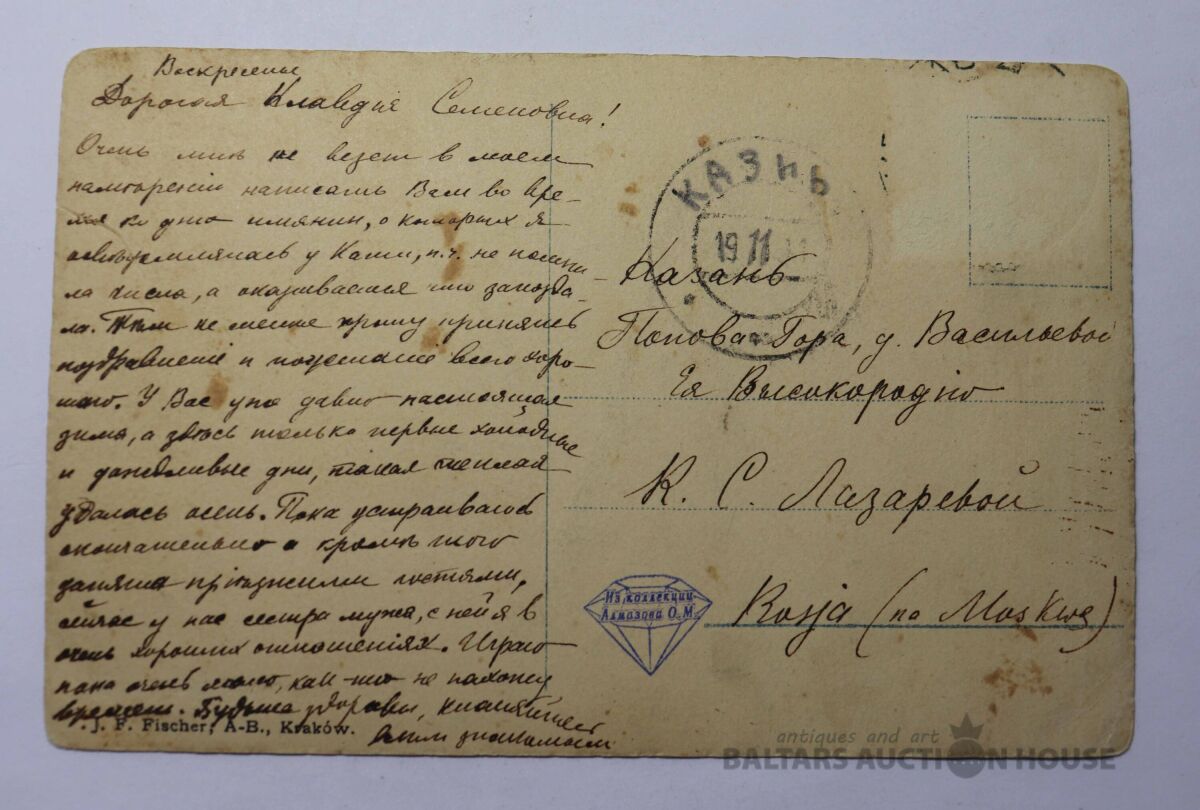 Воскресенье
Дорогая Клавдия Семеновна!
Очень мнѣ не везет в моем
намѣрении написать Вам во вре-
мя ко дню имянин, о которых я
освѣдомлялась у Кати, п.ч. не помни-
ла числа, а оказывается что запозда-
ла. Тѣм не менее прошу принять
поздравление и пожелание всего хоро-
шего. У Вас уже давно настоящая
зима, а здѣсь только первые холодные
и дождливые дни, такая теплая
удалась осень. Пока устраиваюсь
окончательно и кромѣ того
занята приѣзжими гостями,
сейчас у нас сестра мужа, с ней я в
очень хороших отношениях. Играю
пока очень мало, как-то не нахожу
времени. Будьте здоровы, кланяйтесь
всѣм знакомым
J. F. Fischer, A-B., Kraków.
КАЗНЬ
19 11
Казань
Попова Гора, д. Васильевой
Ея Высокородию
К. С. Лазаревой
Rosja (na Moskwę)
Из коллекции
Алмазова О.М.
antiques and art
BALTARS AUCTION HOUSE